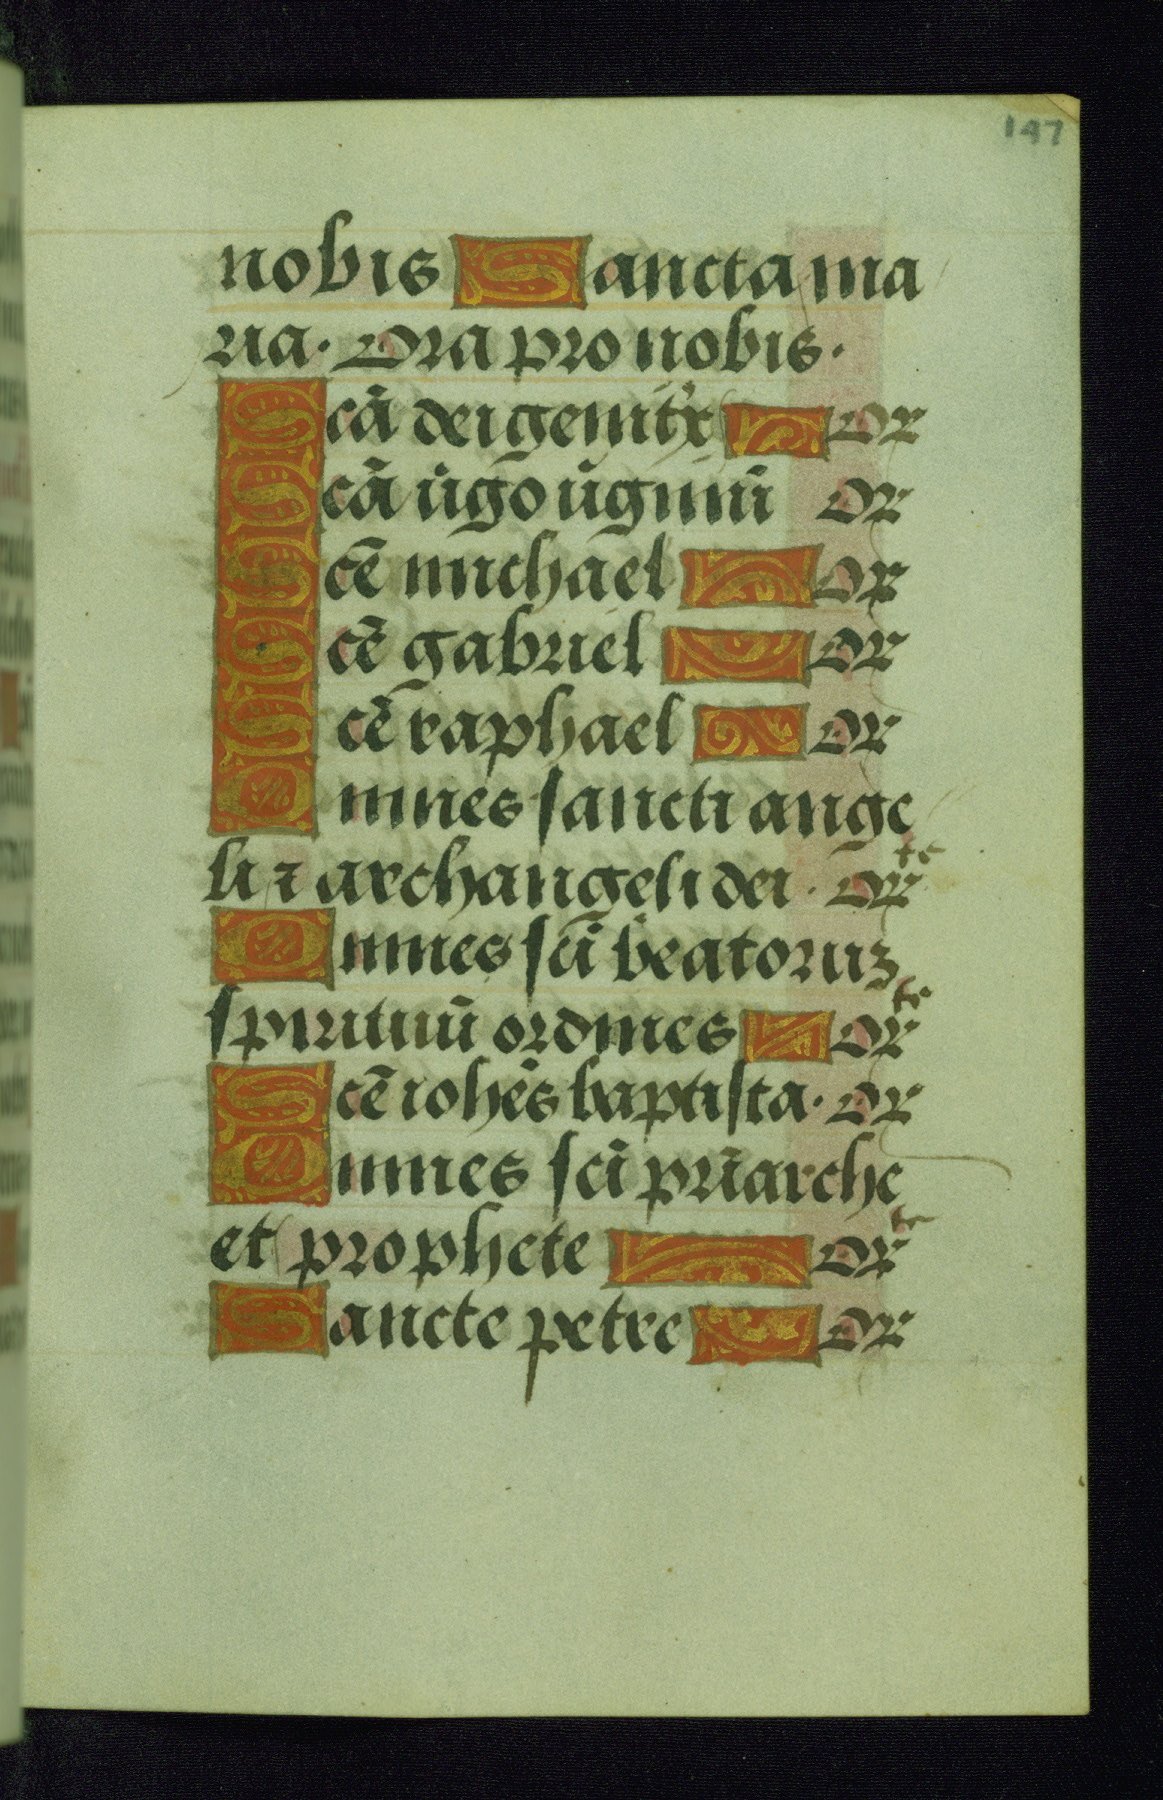 147
nobis Sancta ma
ria. Ora pro nobis.
Scā dei genitͥx Or
Scā uͥgo uͥginū Or
Scē michael Or
Scē gabriel Or
Scē raphael Or
Omnes sancti ange
li ⁊ archangeli dei. Orᵗᵉ
Omnes sci̅ beatoruꝫ
spirituū ordines Orᵗᵉ
Scē iohēs baptista. Or
Omnes sci̅ pri̅arche
et prophete Orᵗᵉ
Sancte petre Or